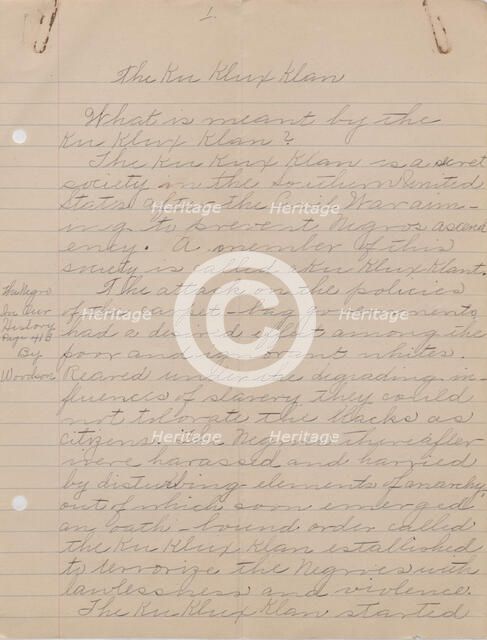 1.
The Ku Klux Klan
What is meant by the
Ku Klux Klan?
The Ku Kux Klan is a secret
society in the Southern United
States after the Civil War aim-
ing to prevent Negros ascend
ency. A member of this
society is called a Ku Klux Klant.
The attack on the policies
of the carpet-bag governments
had a desired effect among the
poor and ignorant whites.
Reared under the degrading in-
fluences of slavery they could
not tolorate the blacks as
citizens. The Negroes thereafter
were harassed and harried
by disturbing elements of anarchy,
out of which soon emerged
an oath-bound order called
the Ku Klux Klan established
to terrorize the Negroes with
lawlessness and violence.
The Ku Klux Klan started
The Negro
In Our
History
Page 418
By
Woodson
Heritage
Heritage
Heritage
Heritage
Heritage
Heritage
Heritage
Heritage
©